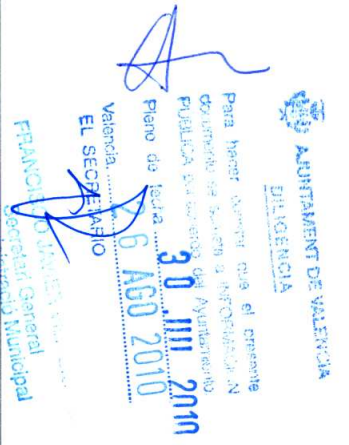 AJUNTAMENT DE VALENCIA
DILIGENCIA
Para hacer constar que el presente
documento se somete a INFORMACION
PUBLICA por acuerdo del Ayuntamiento
Pleno de fecha 30 JUL 2010
Valencia, 26 AGO 2010
EL SECRETARIO
FRANCISCO JAVIER
Secretari General
Municipal